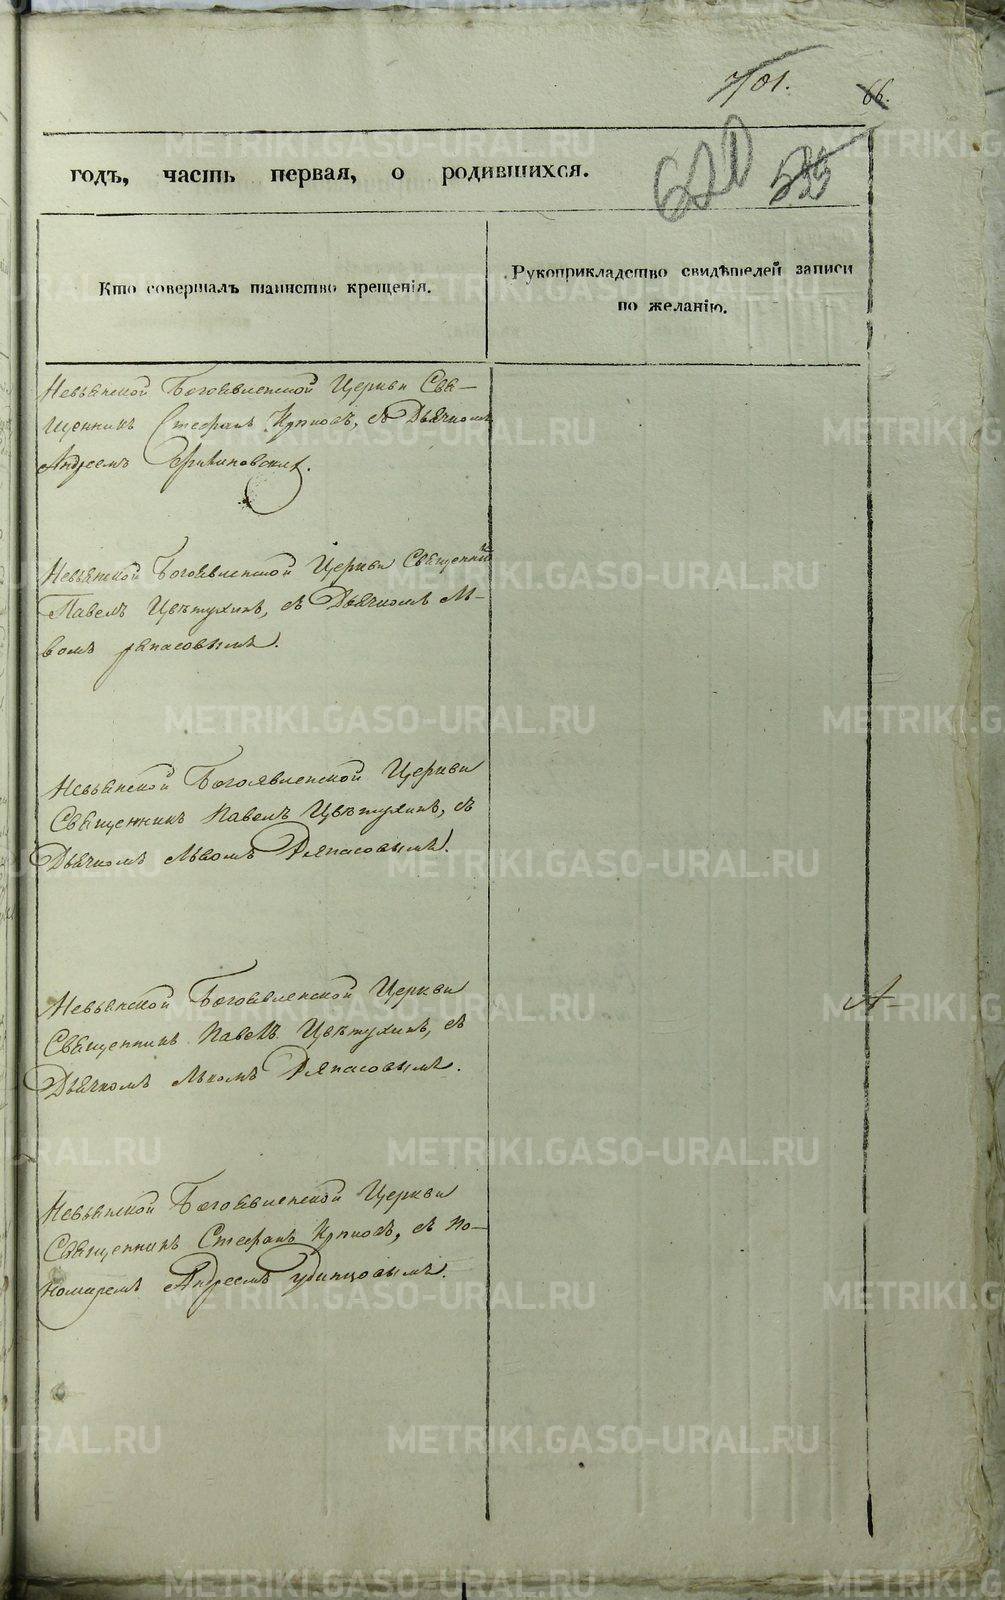 7/01.
66.
годъ, часть первая, о родившихся.
620 535
Кто совершалъ таинство крещенія.
Рукоприкладство свидѣтелей записи
по желанію.
Невьянской Богоявленской Церкви Свя-
щенникъ Стефанъ съ Дьячкомъ
Андреемъ
Невьянской Богоявленской Церкви Священникъ
Павелъ Цвѣтухинъ, съ Дьячкомъ Ль-
вомъ Ряпасовымъ.
Невьянской Богоявленской Церкви
Священникъ Павелъ Цвѣтухинъ, съ
Дьячкомъ Львомъ Ряпасовымъ.
Невьянской Богоявленской Церкви
Священникъ Павелъ Цвѣтухинъ, съ
Дьячкомъ Львомъ Ряпасовымъ.
Невьянской Богоявленской Церкви
Священникъ Стефанъ съ По-
номаремъ Андреемъ Удинцовымъ.
METRIKI.GASO-URAL.RU